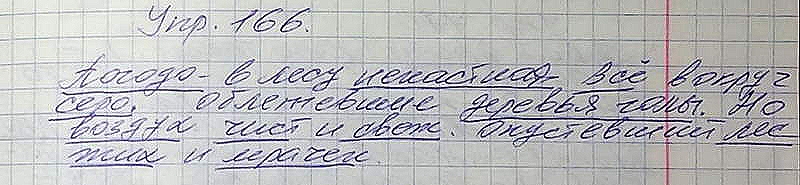 Упр. 166.
Погода в лесу ненастная. Всё вокруг
серо. Облетевшие деревья голы. Но
воздух чист и свеж. Опустевший лес
тих и мрачен.